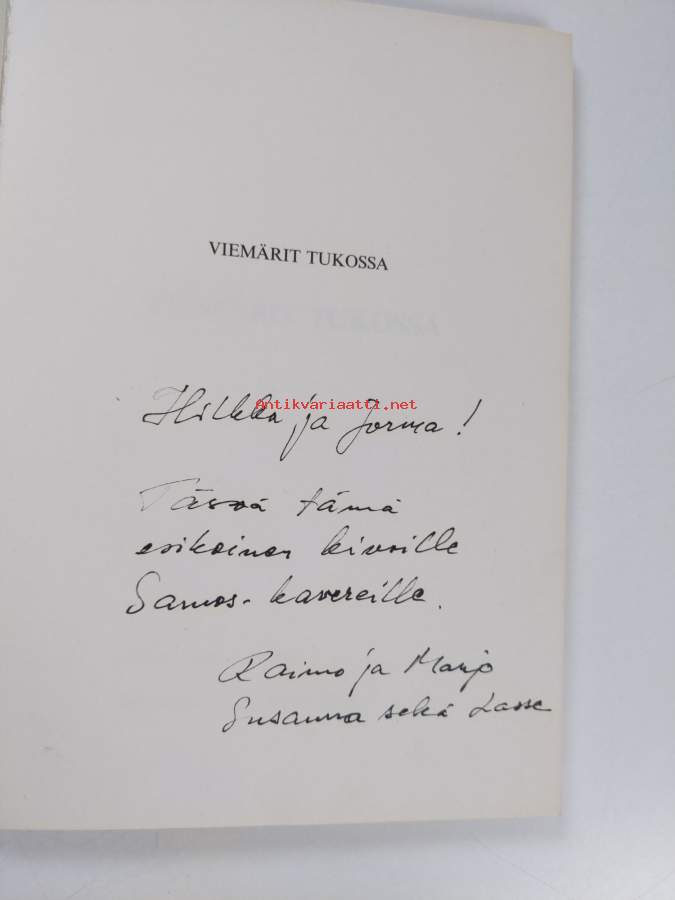 VIEMÄRIT TUKOSSA
Hilkka ja Jorma!
Antikvariaatti.net
Tässä tämä
esikoinen kivoille
Samos-kavereille.
Raimo ja Marjo
Susanna sekä Lasse